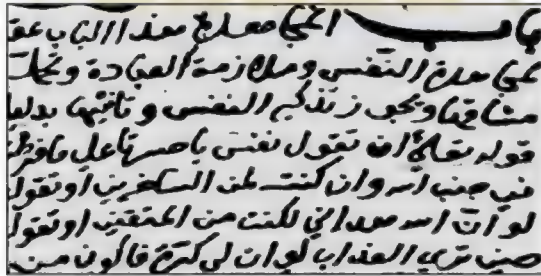 باب المجاهدة هذا الباب عقد
لمجاهدة النفس وملازمة العبادة وتحمل
مشاقها ويجوز تذكير النفس وتأنيثها بدليل
قوله تعالى ان تقول نفس ياحسرتا على مافرطت
في جنب الله وان كنت لمن الساخرين او تقول
لو أن الله هداني لكنت من المتقين او تقول
حين ترى العذاب لو ان لي كرة فاكون من